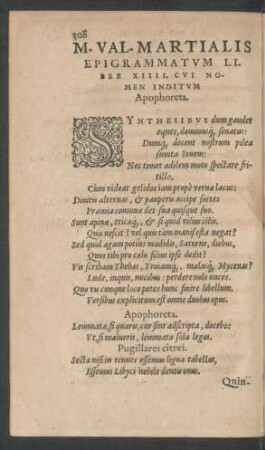 308
M. VAL. MARTIALIS
EPIGRAMMATVM LI-
BER XIIII. CVI NO-
MEN INDITVM
Apophoreta.
SYNTHESIBVS dum gaudet
eques, dominusq́, senatus:
Dumq́, decent nostrum pilea
sumta Iouem:
Nec timet ædilem moto spectare fri-
tillo,
Cùm videat gelidos iam propè verna lacus:
Diuitis alternas, & pauperis accipe sortes
Præmia conuiuæ det sua quisque suo.
Sunt apinæ, tricæq́, & si quid vilius istis.
Quis nescit? vel quis tam manifesta negat?
Sed quid agam potius madidis, Saturne, diebus,
Quos tibi pro cælo filius ipse dedit?
Vis scribam Thebas, Troiamq́, malasq́, Mycenas?
Lude, inquis, nucibus: perdere nolo nuces.
Quo vis cumque loco potes hunc finire libellum.
Versibus explicitum est omne duobus opus.
Apophoreta.
Lemmata, si quæris, cur sint adscripta, docebo:
Vt, si malueris, lemmata sola legas.
Pugillares citrei.
Secta nisi in tenues essemus ligna tabellas,
Essemus Libyci nobile dentis onus.
Quin-